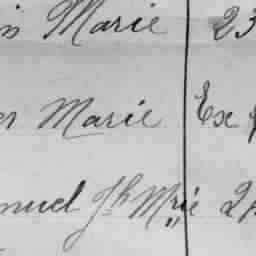 Marie 23
Marie Ex
nuel Jh Mrie 2